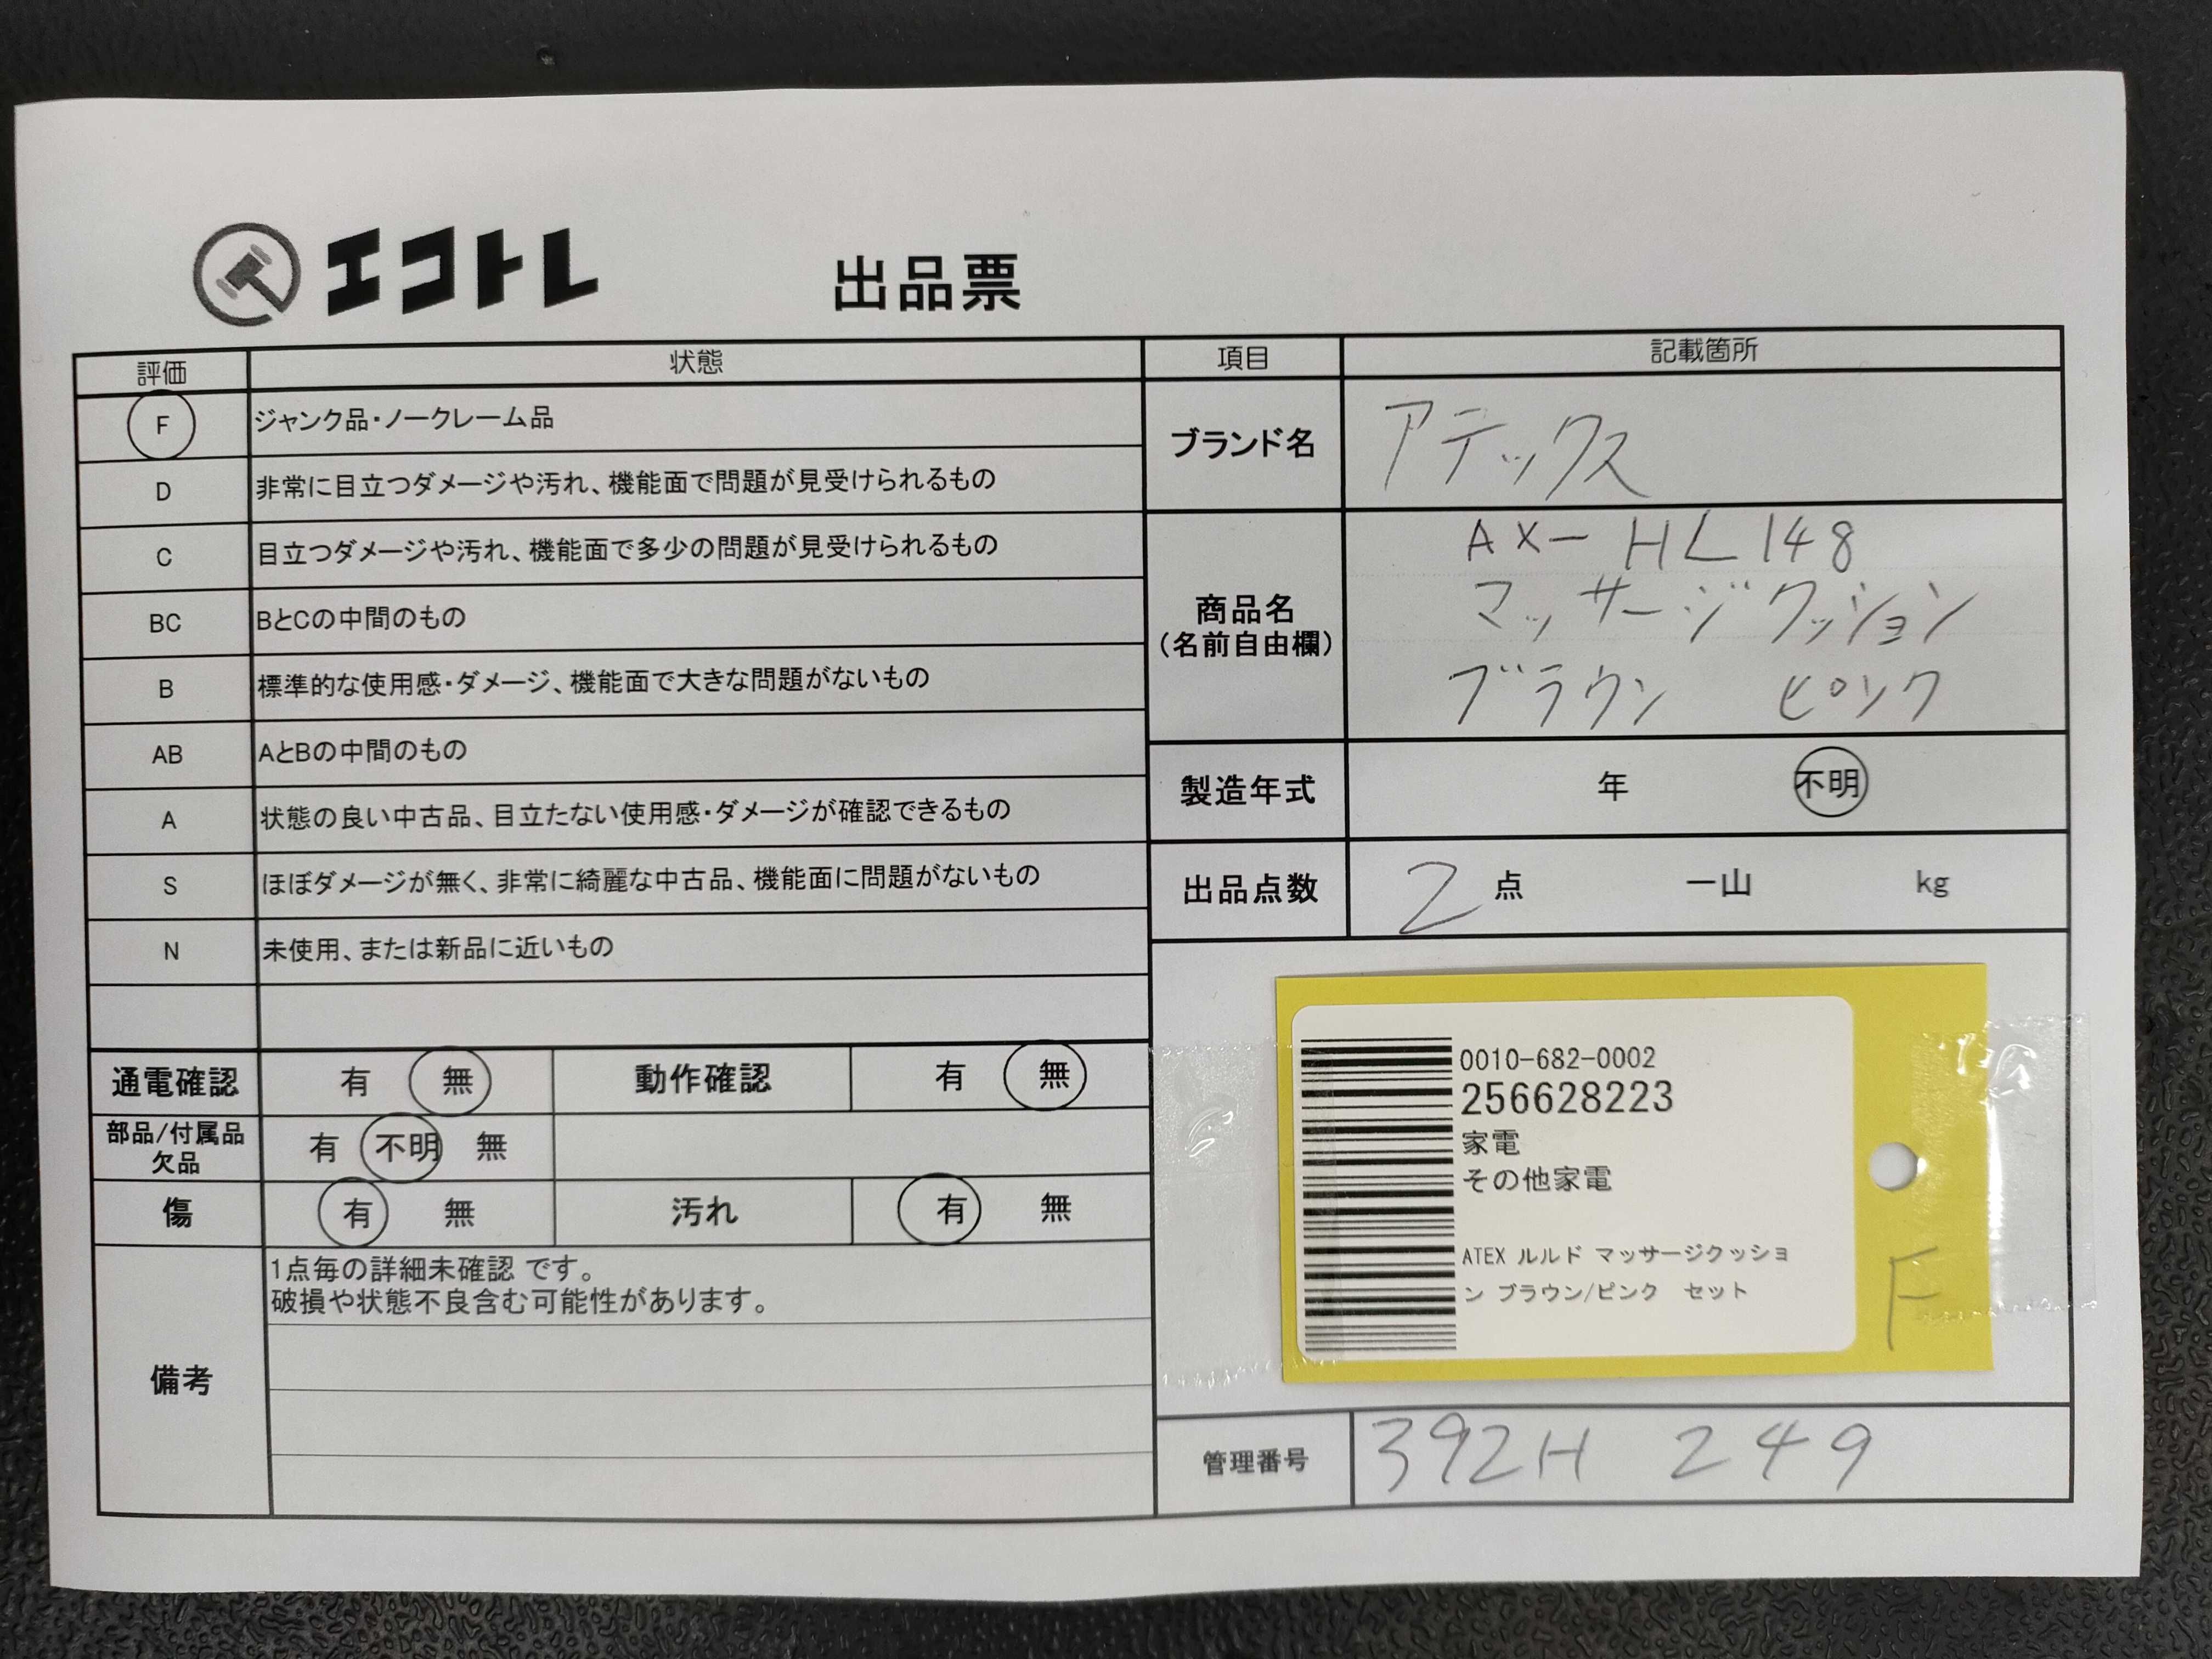 エコトレ
出品票
評価 状態
F ジャンク品・ノークレーム品
D 非常に目立つダメージや汚れ、機能面で問題が見受けられるもの
C 目立つダメージや汚れ、機能面で多少の問題が見受けられるもの
BC BとCの中間のもの
B 標準的な使用感・ダメージ、機能面で大きな問題がないもの
AB AとBの中間のもの
A 状態の良い中古品、目立たない使用感・ダメージが確認できるもの
S ほぼダメージが無く、非常に綺麗な中古品、機能面に問題がないもの
N 未使用、または新品に近いもの
通電確認 有 無 動作確認 有 無
部品/付属品
欠品
有 不明 無
傷 有 無 汚れ 有 無
備考
1点毎の詳細未確認 です。
破損や状態不良含む可能性があります。
項目 記載箇所
ブランド名 アテックス
商品名
(名前自由欄)
AX-HL148
マッサージクッション
ブラウン ピンク
製造年式 年 不明
出品点数 2 点 一山 kg
0010-682-0002
256628223
家電
その他家電
ATEX ルルド マッサージクッショ
ン ブラウン/ピンク セット
F
管理番号 392H 249